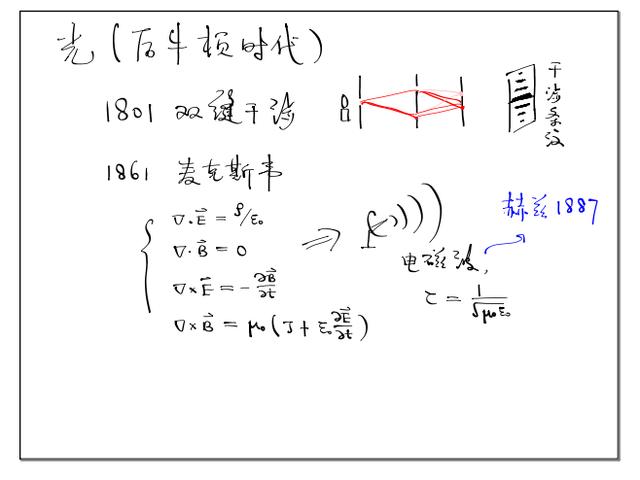 光(后牛顿时代)
1801 双缝干涉
干涉条纹
1861 麦克斯韦
∇·E⃗ = ρ/ε₀
∇·B⃗ = 0
∇×E⃗ = -∂B⃗/∂t
∇×B⃗ = μ₀(J + ε₀ ∂E⃗/∂t)
⇒
电磁波,
c = 1/√μ₀ε₀
赫兹 1887